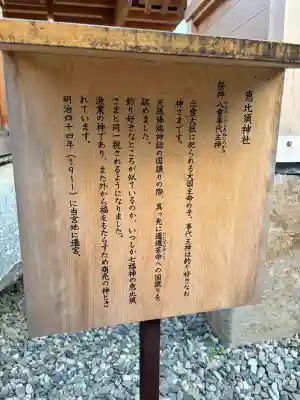 恵比須神社
祭神 八重事代主神
出雲大社に祀られる大国主命の子、事代主神は釣り好きなお
神さまです。
天孫降臨神話の国譲りの際、真っ先に邇邇芸命への国譲りを
認めました。
釣り好きなところが似ているのか、いつしか七福神の恵比須
さまと同一視されるようになりました。
漁業の神であり、また外から福をもたらすため商売の神とさ
れています。
明治四十四年（1911）に当宮地に遷宮。